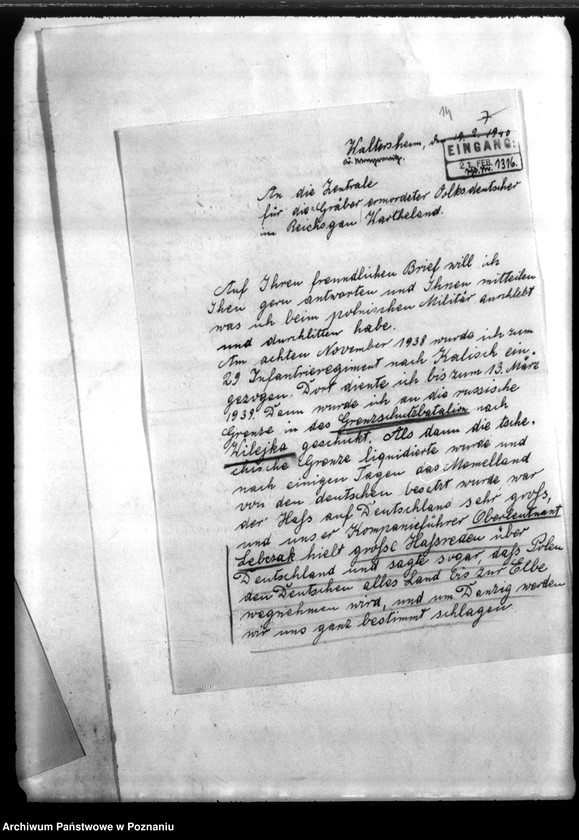 14
7
Waltersheim, den 19.2.1940
EINGANG:
21. FEB.
1316.
An die Zentrale
für die Gräber ermordeter Volksdeutscher
im Reichsgau Wartheland.
Auf Ihren freundlichen Brief will ich
Ihen gern antworten und Ihnen mitteilen
was ich beim polnischen Militär durchlebt
und durchlitten habe.
Am achten November 1938 wurde ich zum
29 Infantrieregiment nach Kalisch ein-
gezogen. Dort diente ich bis zum 13. März
1939. Dann wurde ich an die russische
Grenze in das Grenzschutzbatalion nach
Wilejka geschickt. Als dann die tsche-
chische Grenze liquidierte wurde und
nach einigen Tagen das Memelland
von den deutschen besetzt wurde war
der Haß auf Deutschland sehr groß,
und unser Kompanieführer Oberleutnant
Lebczak hielt große Haßreden über
Deutschland und sagte sogar, daß Polen
den Deutschen alles Land bis zur Elbe
wegnehmen wird, und um Danzig werden
wir uns ganz bestimmt schlagen
Archiwum Państwowe w Poznaniu